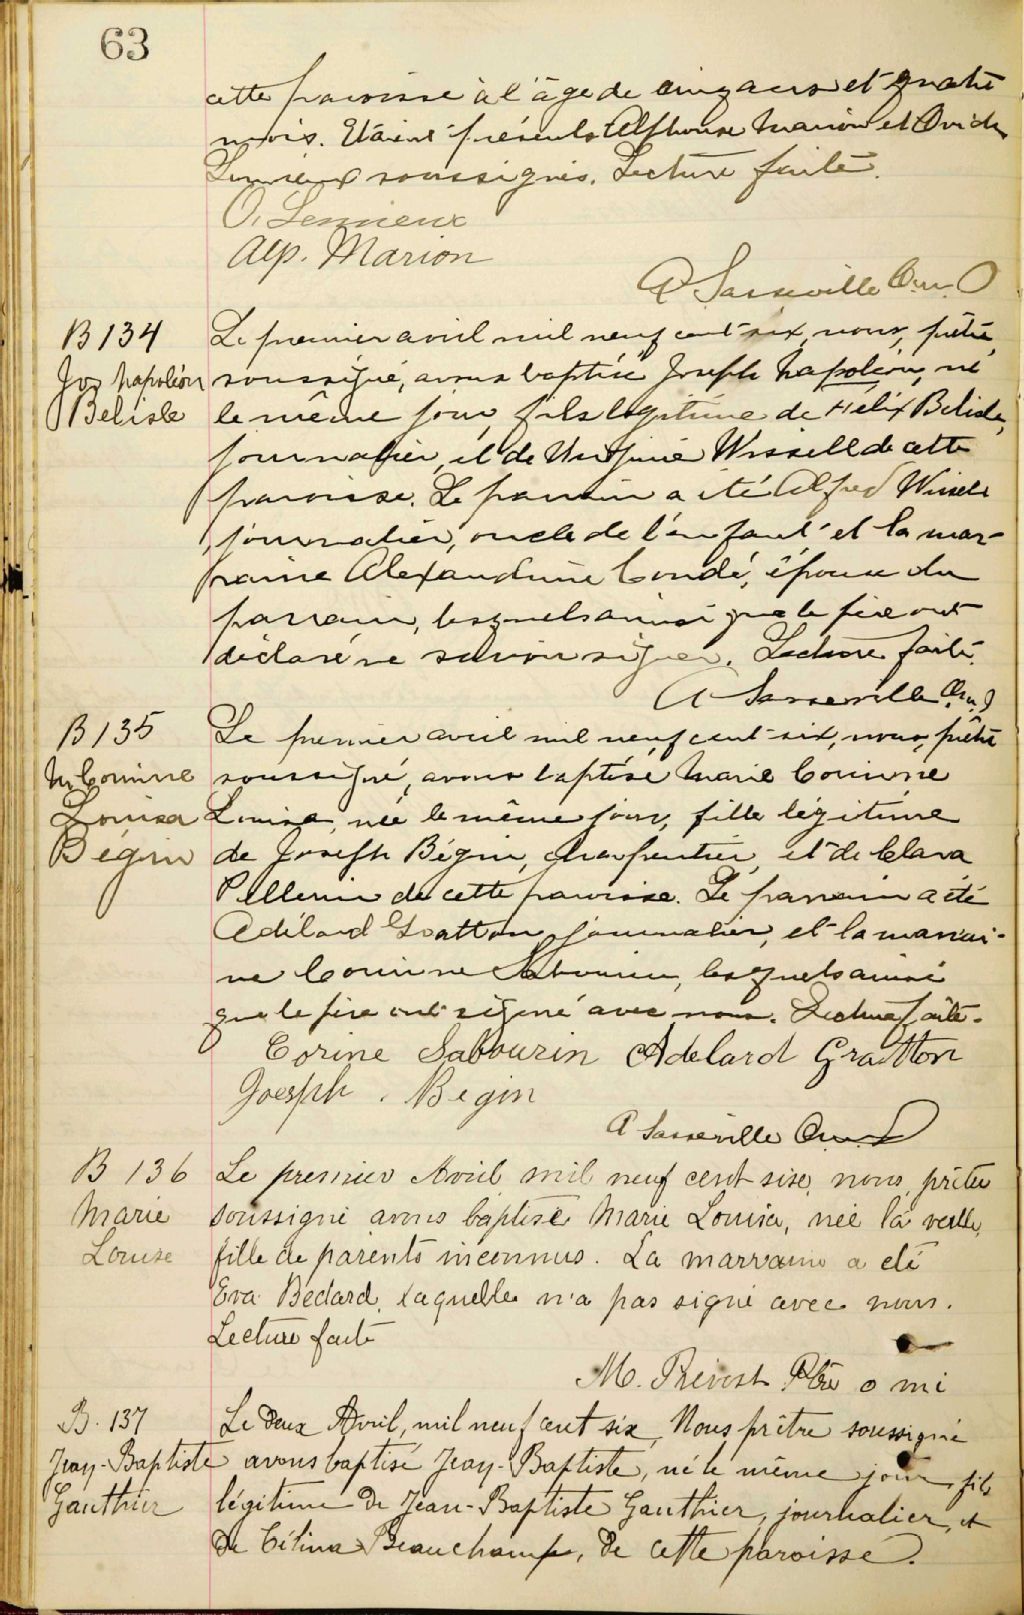 63
cette paroisse à l'âge de cinq ans et quatre
mois. Étaient présents Alphonse Marion et Ovide
Lemieux soussignés. Lecture faite.
O. Lemieux
Alp. Marion
A Sasseville
B 134
Jos Napoléon
Belisle
Le premier avril mil neuf cent six, nous, prêtre
soussigné, avons baptisé Joseph Napoléon, né
le même jour, fils légitime de Félix Belisle,
journalier, et de Virginie Wissell de cette
paroisse. Le parrain a été Alfred Wissell
journalier, oncle de l'enfant et la mar-
raine Alexandrine Condé, épouse du
parrain, lesquels ainsi que le père ont
déclaré ne savoir signer. Lecture faite.
A Sasseville
B 135
M. Corinne
Louisa
Bégin
Le premier avril mil neuf cent six, nous, prêtre
soussigné, avons baptisé Marie Corinne
Louisa, née le même jour, fille légitime
de Joseph Bégin, charpentier, et de Clara
Pellerin de cette paroisse. Le parrain a été
Adélard Gratton journalier, et la marrai-
ne Corinne Sabourin, lesquels ainsi
que le père ont signé avec nous. Lecture faite.
Corine Sabourin Adelard Gratton
Joesph . Begin
A Sasseville
B 136
Marie
Louise
Le premier Avril mil neuf cent six, nous, prêtre
soussigné avons baptisé Marie Louisa, née la veille,
fille de parents inconnus. La marraine a été
Eva Bedard, laquelle n'a pas signé avec nous.
Lecture faite
M. Prévost Ptre o m i
B. 137
Jean-Baptiste
Gauthier
Le deux Avril, mil neuf cent six, Nous prêtre soussigné
avons baptisé Jean-Baptiste, né le même jour fils
légitime de Jean-Baptiste Gauthier, journalier, et
de Célina Beauchamp, de cette paroisse.